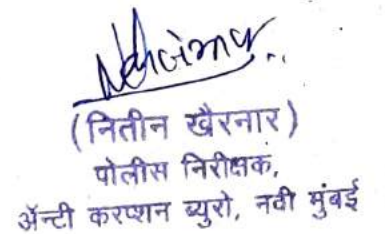 (नितीन खैरनार)
पोलीस निरीक्षक,
ॲन्टी करप्शन ब्युरो, नवी मुंबई